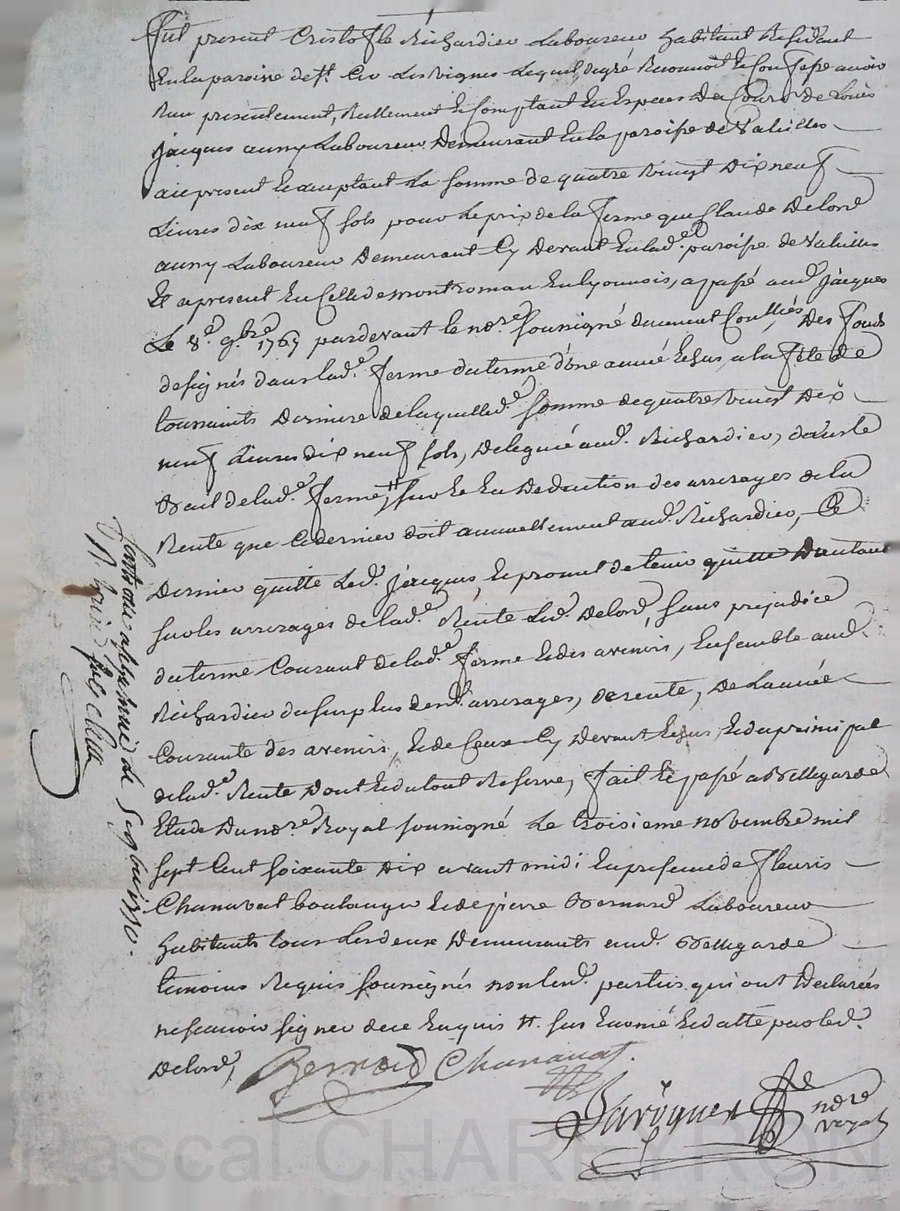 fut present Cristofle Richardier Laboureur habitant Residant
En la paroisse de St. Cir Les vignes Lequel de gré Reconnoit Et Confesse avoir
Reçu presentement, Reellement Et Comptant En Especes Du Cours de Louis
jacques auny Laboureur Demeurant En la paroisse de Valeilles
aie present Et acceptant La somme de quatre vingt Dix neuf
Livres dix neuf sols pour Le prix de la ferme que Claude Delord
auny Laboureur Demeurant Cy Devant En lad.e paroisse de Valeilles
Et apresent En Celle de montroman En lyonnois, a passé aud. jacques
Le 8.e 9bre 1769 pardevant le nore. soussigné duement Conllé, Des fonds
designés dans lad.e ferme du terme d'une année Echus, a la fête de
toussaints Derniere de laquelle d.e somme de quatre vingt Dix
neuf Livres dix neuf sols, Deleguée aud. Richardier, dans le
Bail de lad.e ferme, # sur Et En Deduction des arrerages de la
Rente que Ce dernier doit annuellement aud. Richardier, Ce
Dernier quitte Led. jacques, Et promet de tenir quitte D'autant
sur les arrerages de lad.e Rente Led. Delord, sans prejudice
du terme Courant de lad.e ferme Et des avenirs, Ensemble aud.
Richardier du surplus desd. arrerages, de rente, De L'année
Courante des avenirs, Et de Ceux Cy Devant Echus, Et du principal
de lad. Rente Dont Et du tout Reserve, fait Et passé a Bellegarde
Etude Du nore. Royal soussigné Le troisieme novembre mil
sept Cent soixante Dix avant midi En presence de fleuris
Chanavat boulanger Et de pierre Bernard Laboureur
habitants tous Les deux Demeurants aud. Bellegarde
temoins Requis soussignés non lesd. parties qui ont Declarées
ne scavoir signer de ce Enquis #. sur Et datté par led.
Delord,
Bernard Chanavat.
nore
royal
de
sols
Pascal CHAREYRON